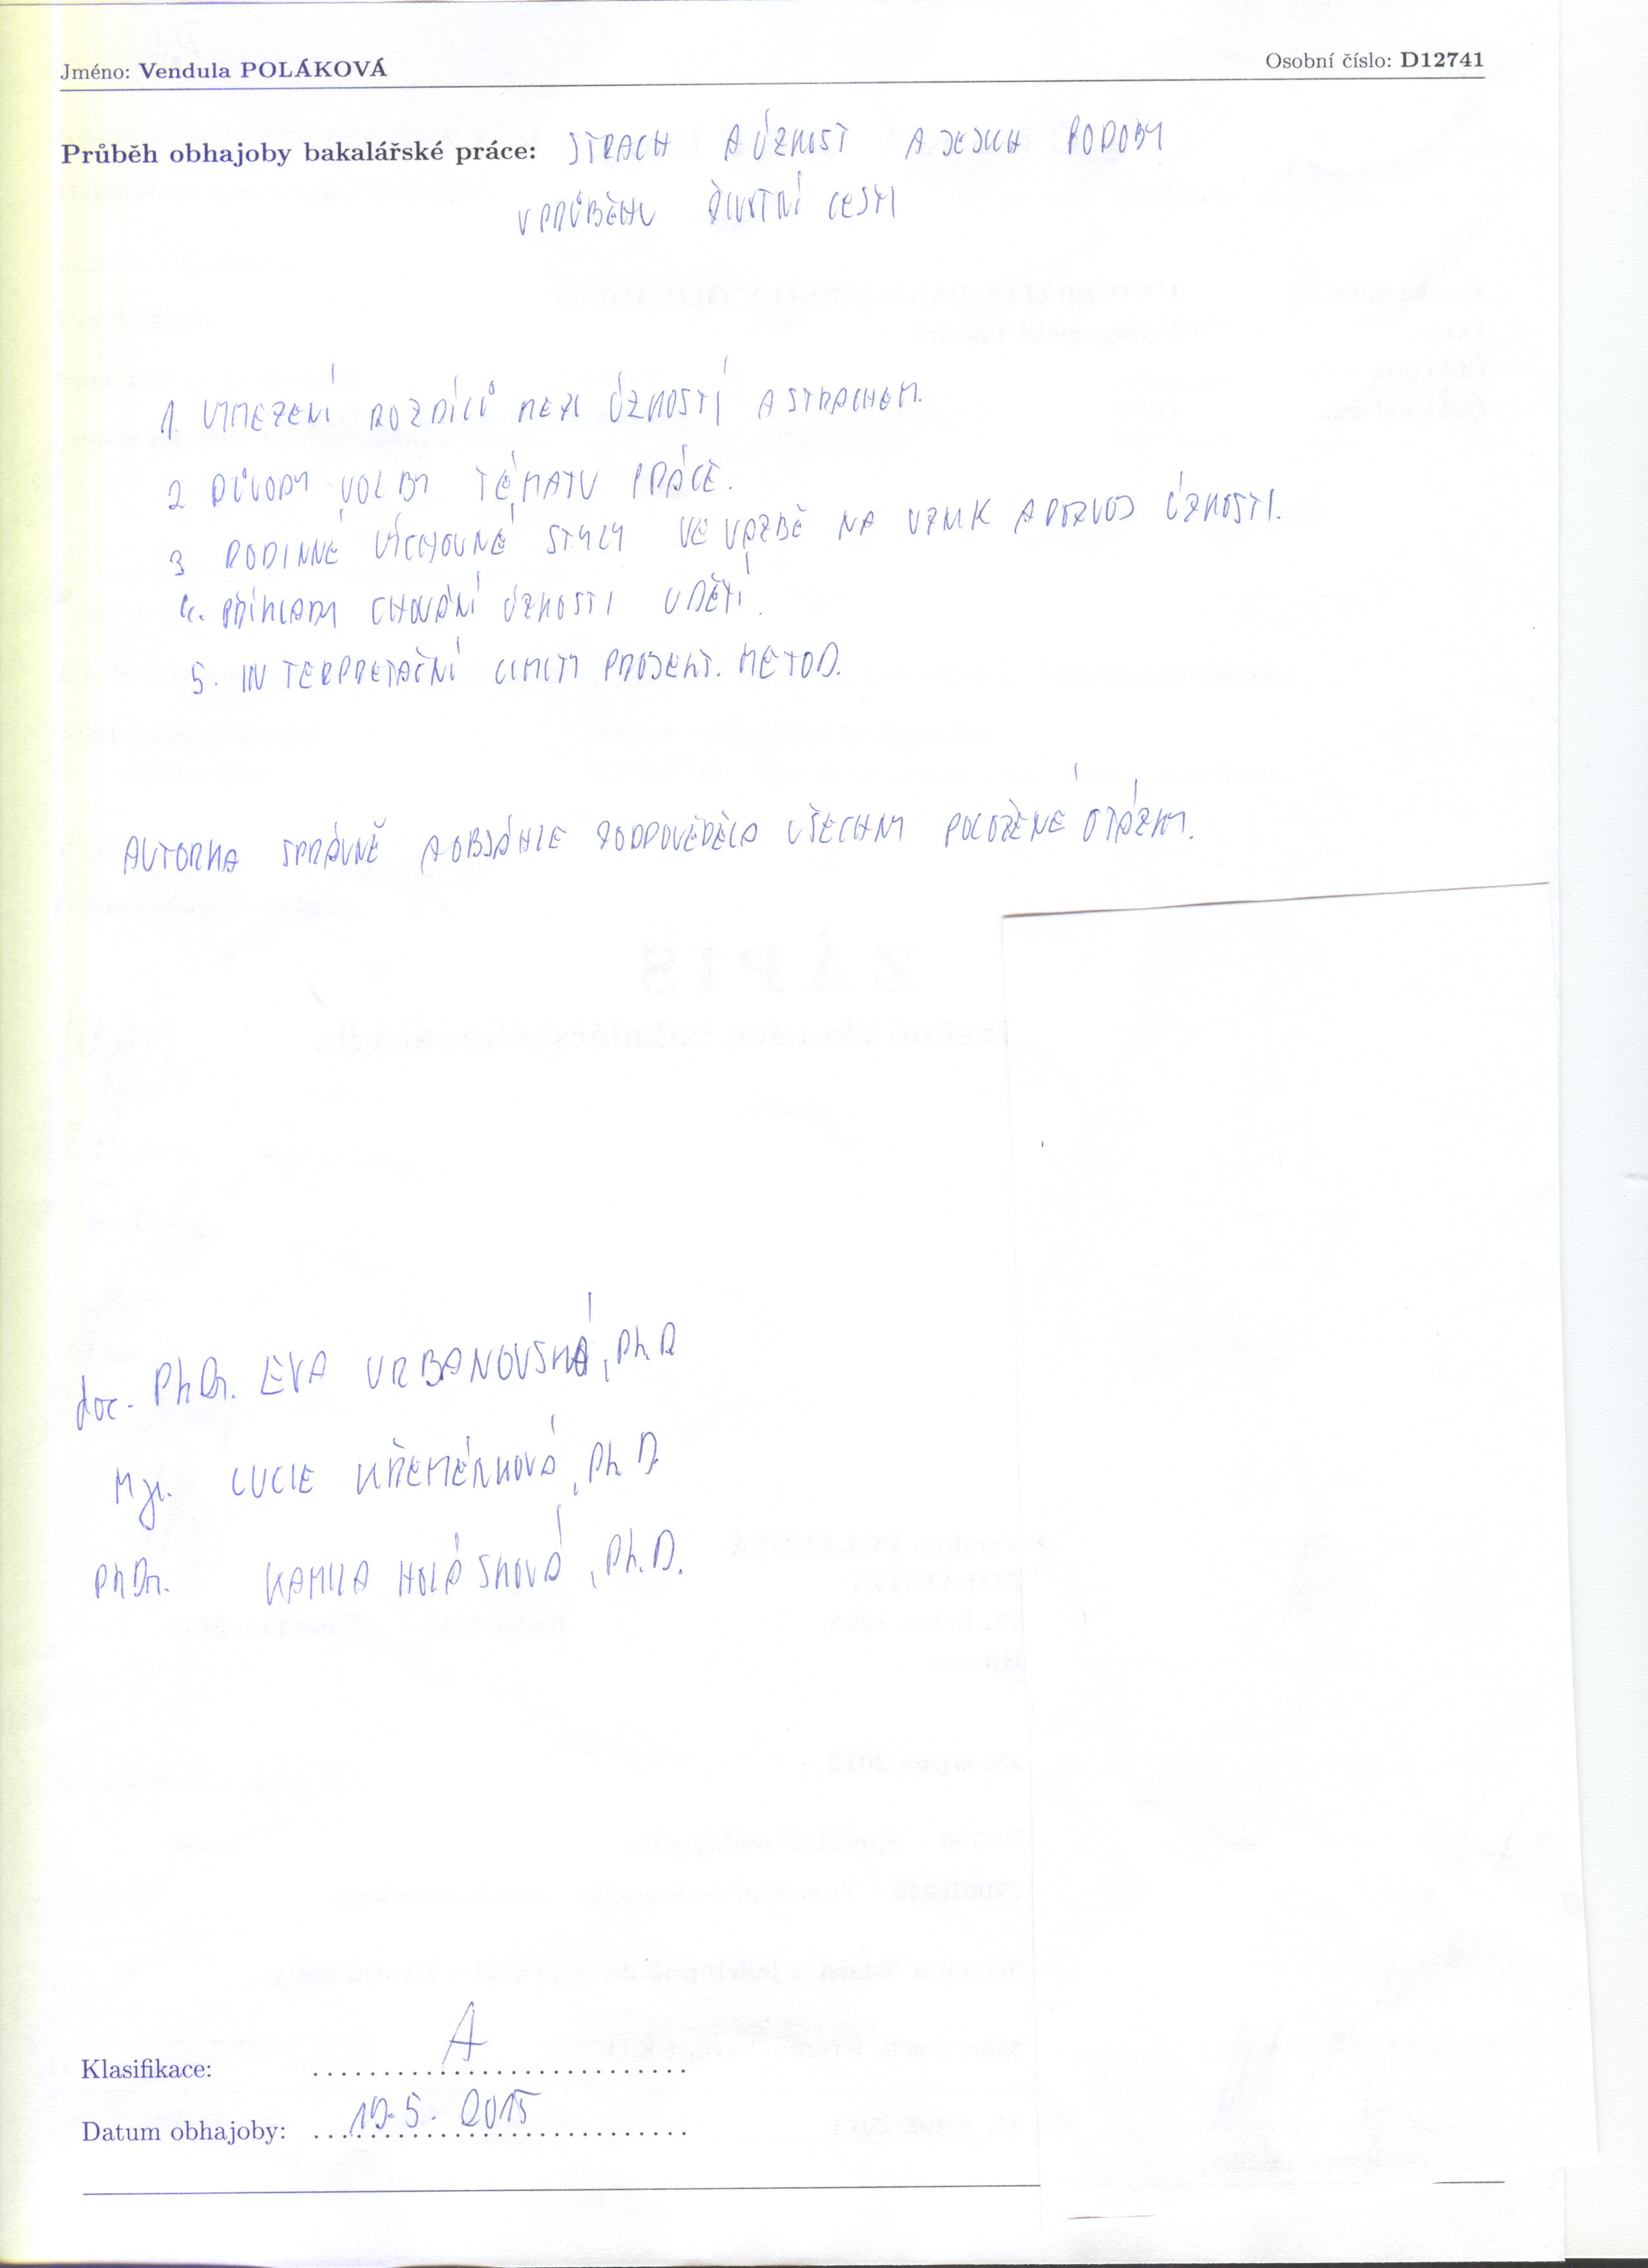 Jméno: Vendula POLÁKOVÁ Osobní číslo: D12741
Průběh obhajoby bakalářské práce: STRACH A ÚZKOST A JEJICH PODOBY
V PRŮBĚHU ŽIVOTNÍ CESTY
1. VYMEZENÍ ROZDÍLŮ MEZI ÚZKOSTÍ A STRACHEM.
2. DŮVODY VOLBY TÉMATU PRÁCE.
3 RODINNÉ VÝCHOVNÉ STYLY VE VAZBĚ NA VZNIK A ROZVOJ ÚZKOSTI.
4. PŘÍKLADY CHOVÁNÍ ÚZKOSTI U DĚTÍ.
5. INTERPRETAČNÍ LIMITY PROJEKT. METOD.
AUTORKA SPRÁVNĚ A OBSÁHLE ZODPOVĚDĚLA VŠECHNY POLOŽENÉ OTÁZKY.
doc. PhDr. EVA URBANOVSKÁ, Ph.D
Mgr. LUCIE KŘEMÉNKOVÁ, Ph.D.
PhDr. KAMILA HOLÁSKOVÁ, Ph.D.
Klasifikace: A
Datum obhajoby: 19.5. 2015